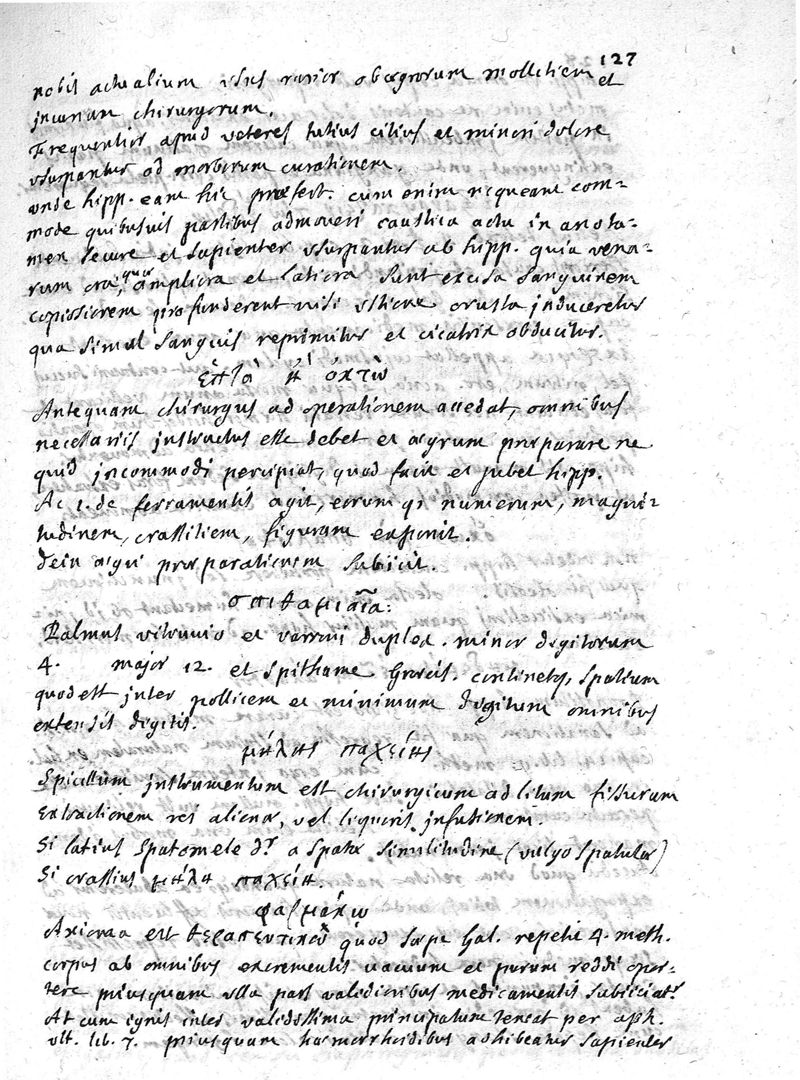 127
nobis actualium usus rarior ob ægrorum mollitiem et
incuriam chirurgorum.
Frequentius apud veteres tutius citius et minori dolore
usurpantur ad morborum curationem.
unde hipp. eam hic præfert. cum enim nequeant com-
mode quibusuis partibus admoveri caustica actu in ano ta-
men secure et sapienter usurpantur ab hipp. quia vena-
rum ora, quæ ampliora et latiora sunt excisa sanguinem
copiosiorem profunderent nisi ustione crusta induceretur
qua simul sanguis reprimitur et cicatrix obducitur.
ἑπτὰ ἢ ὀκτὼ
Antequam chirurgus ad operationem accedat, omnibus
necessariis instructus esse debet et ægrum præparare ne
quid incommodi percipiat, quod facit et jubet hipp.
Ac 1. de ferramentis agit, eorum qȝ numerum, magni-
tudinem, crassitiem, figuram exponit.
dein ægri præparationem subiicit.
σπιθαμιαῖα:
Palmus vitruvio et varroni duplex. minor digitorum
4. major 12. et spithame Græcis. continetqȝ spatium
quod est inter pollicem et minimum digitum omnibus
extensis digitis.
μήλης παχείης
Specillum instrumentum est chirurgicum ad litum fissurarum
Extractionem rei alienæ, vel liquoris infusionem.
Si latius spatomele dr a spathæ similitudine (vulgo spatula)
Si crassius μήλη παχείη.
φαρμάκω
Axioma est θεραπευτικὸν quod sæpe Gal. repetit 4. meth.
corpus ab omnibus excrementis vacuum et purum reddi opor-
tere priusquam ulla pars validioribus medicamentis subiiciatr
At cum ignis inter validissima principatum teneat per aph.
ult. lib. 7. priusquam hæmorrhoidibus adhibeatur sapienter